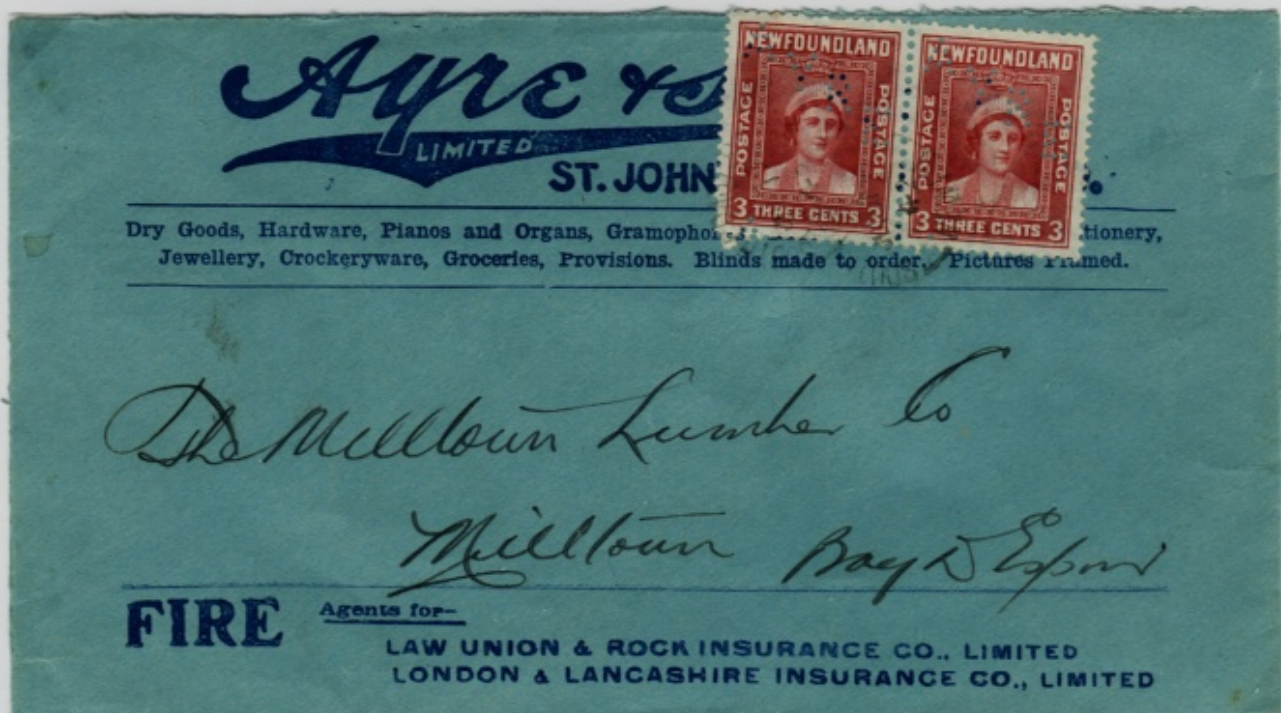 Ayre & S
LIMITED
ST. JOHN'
NEWFOUNDLAND
POSTAGE POSTAGE
3 THREE CENTS 3
NEWFOUNDLAND
POSTAGE POSTAGE
3 THREE CENTS 3
Dry Goods, Hardware, Pianos and Organs, Gramopho tionery,
Jewellery, Crockeryware, Groceries, Provisions. Blinds made to order. Pictures Framed.
The Milltown Lumber Co
Milltown Bay D Espoir
FIRE Agents for—
LAW UNION & ROCK INSURANCE CO., LIMITED
LONDON & LANCASHIRE INSURANCE CO., LIMITED